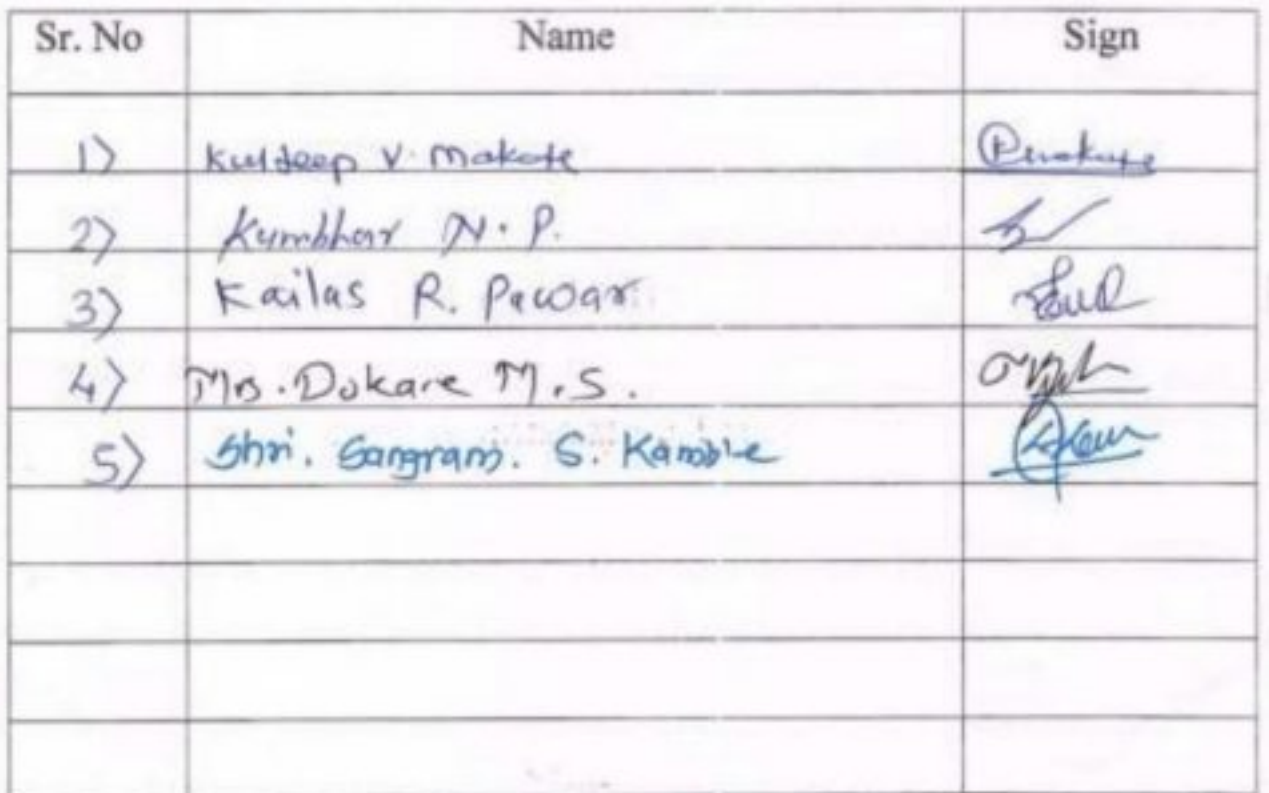 Sr. No Name Sign
1) Kuldeep V. Makote
2) Kumbhar N. P.
3) Kailas R. Pawar
4) Mrs. Dokare M. S.
5) Shri. Sangram. S. Kamble